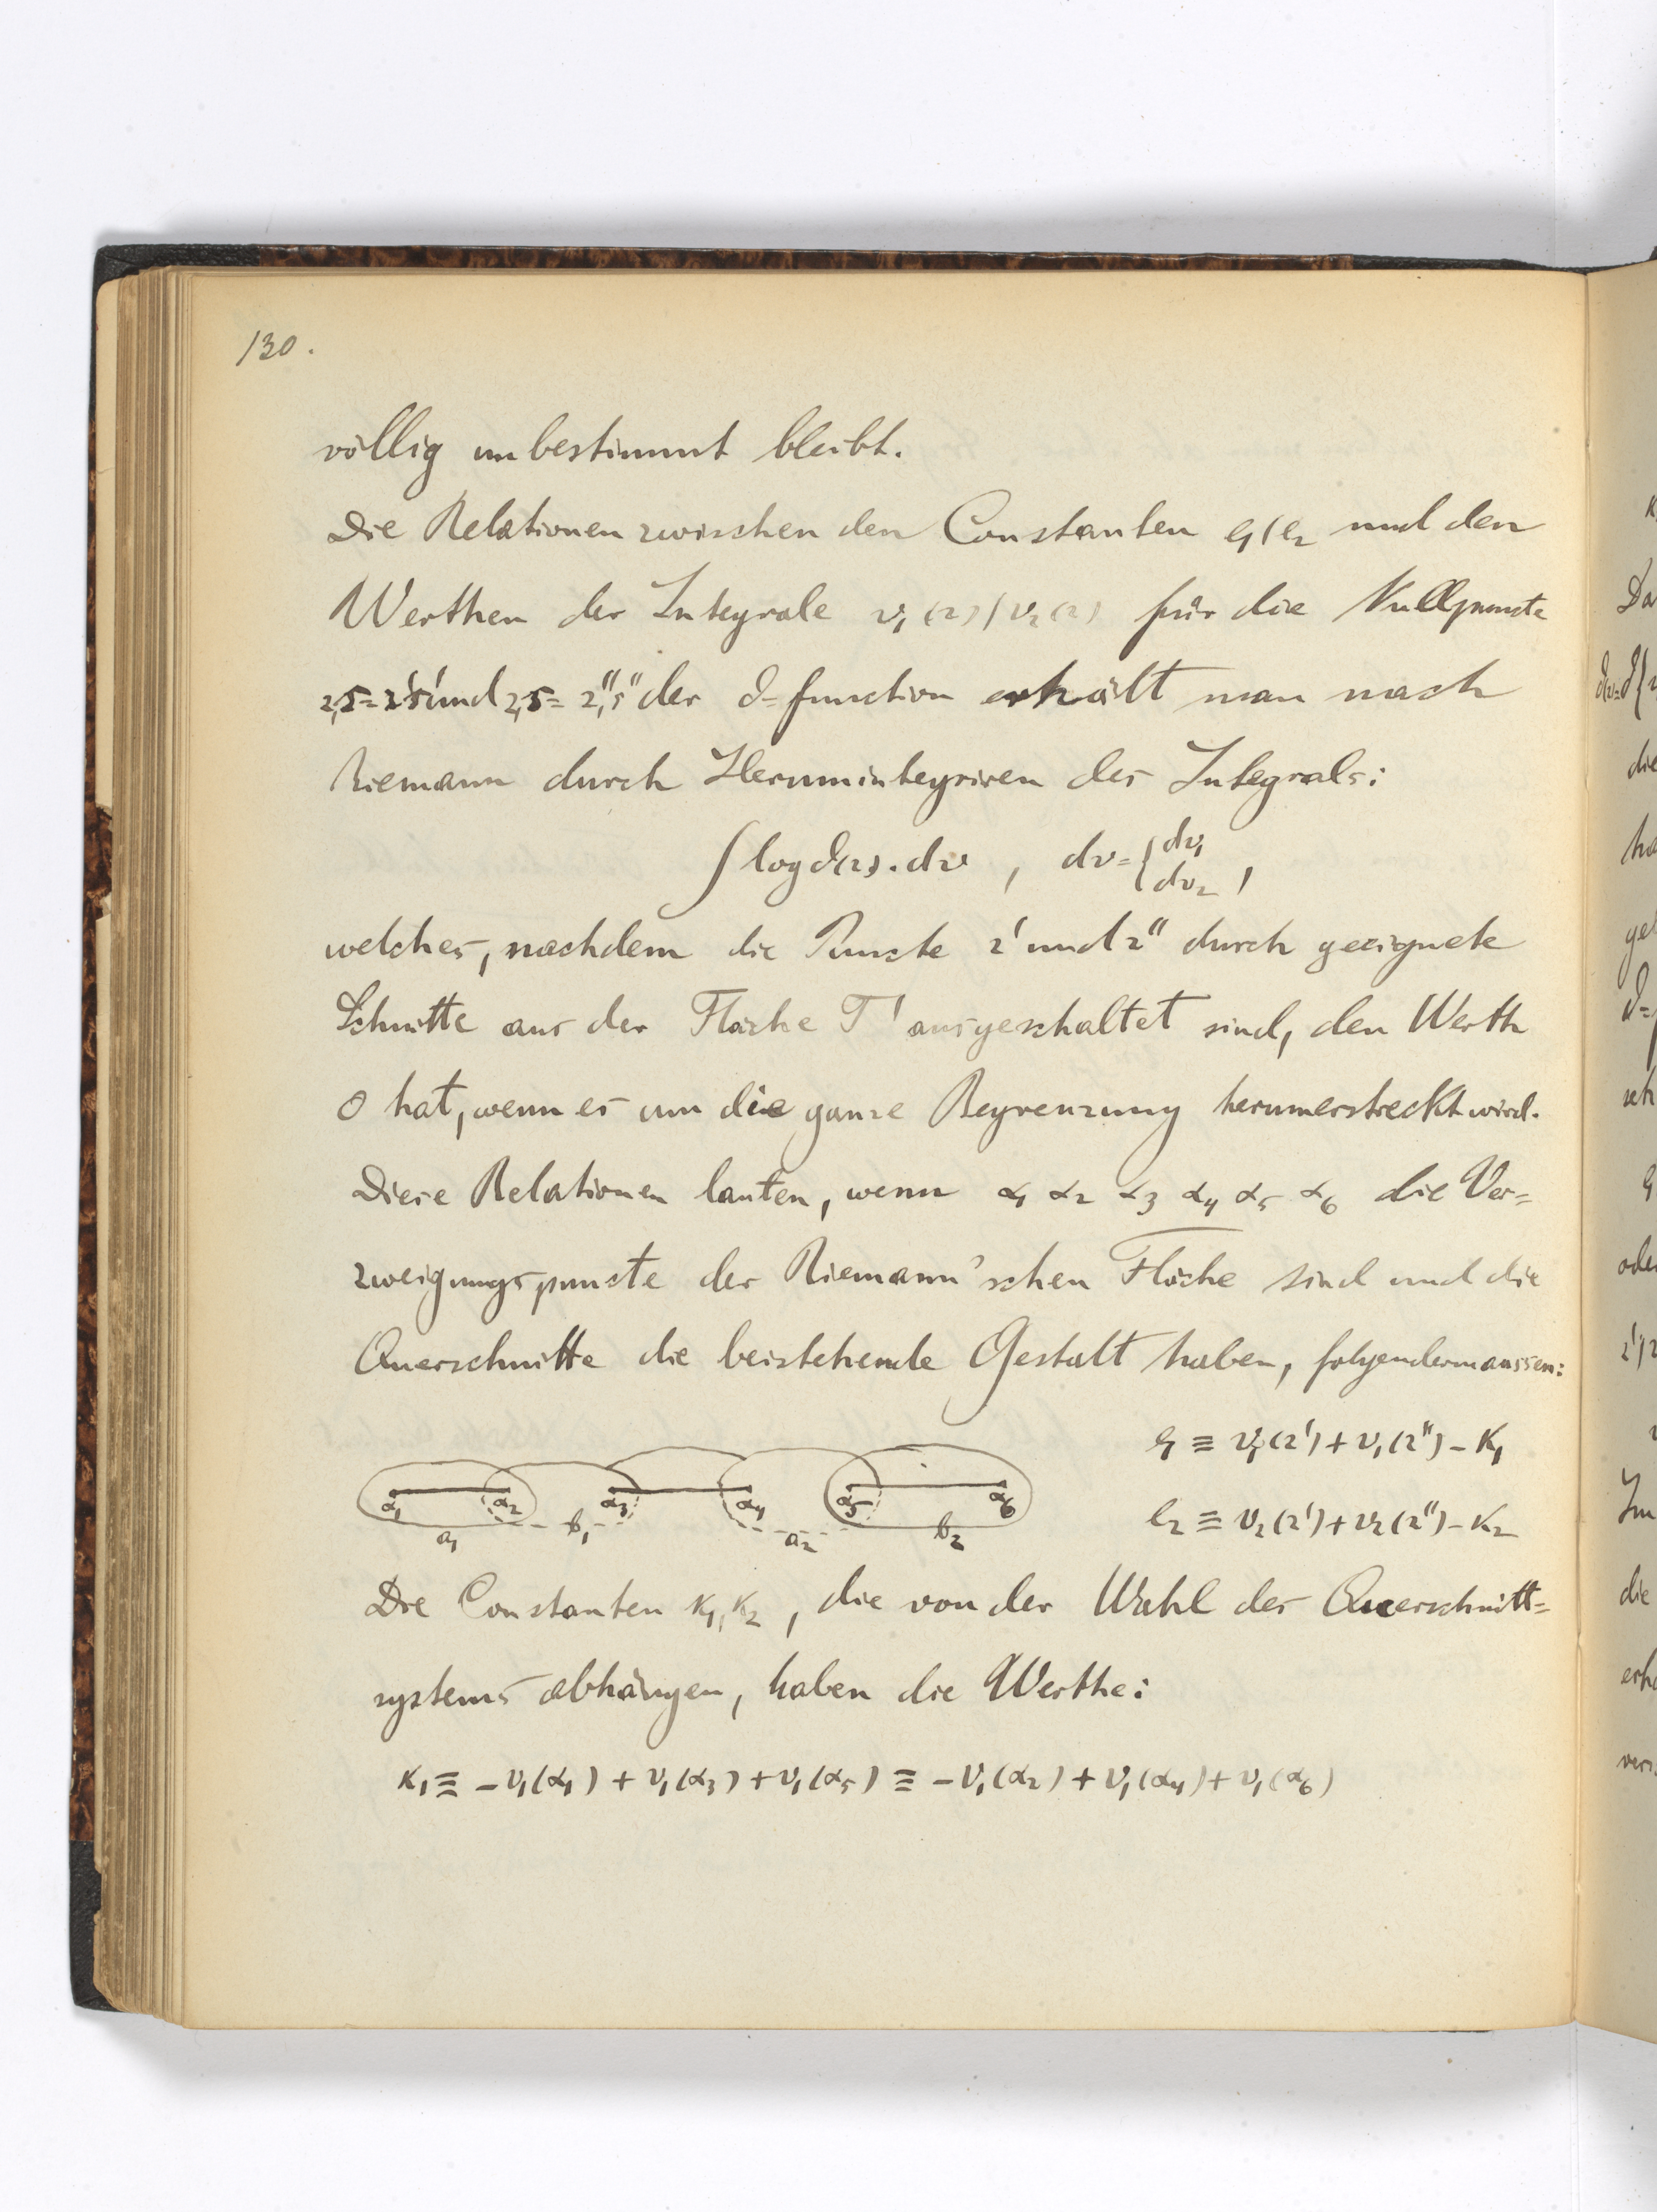 130.
völlig unbestimmt bleibt.
Die Relationen zwischen den Constanten e₁, e₂ und den
Werthen der Integrale v₁(z), v₂(z) für die Nullpuncte
z,s = z',s' und z,s = z'',s'' der ϑ=function erhält man nach
Riemann durch Herumintegriren des Integrals:
∫ log ϑ(z). dv , dv = { dv₁ dv₂ ,
welches, nachdem die Puncte z' und z'' durch geeignete
Schnitte aus der Fläche T' ausgeschaltet sind, den Werth
0 hat, wenn es um die ganze Begrenzung herumerstreckt wird.
Diese Relationen lauten, wenn α₁ α₂ α₃ α₄ α₅ α₆ die Ver=
zweigungspuncte der Riemann'schen Fläche sind und die
Querschnitte die beistehende Gestalt haben, folgendermaassen:
e₁ ≡ v₁(z') + v₁(z'') − K₁
α₁ α₂ α₃ α₄ α₅ α₆
a₁ b₁ a₂ b₂
e₂ ≡ v₂(z') + v₂(z'') − K₂
Die Constanten K₁, K₂, die von der Wahl des Querschnitt=
systems abhängen, haben die Werthe:
K₁ ≡ −v₁(α₁) + v₁(α₃) + v₁(α₅) ≡ −v₁(α₂) + v₁(α₄) + v₁(α₆)